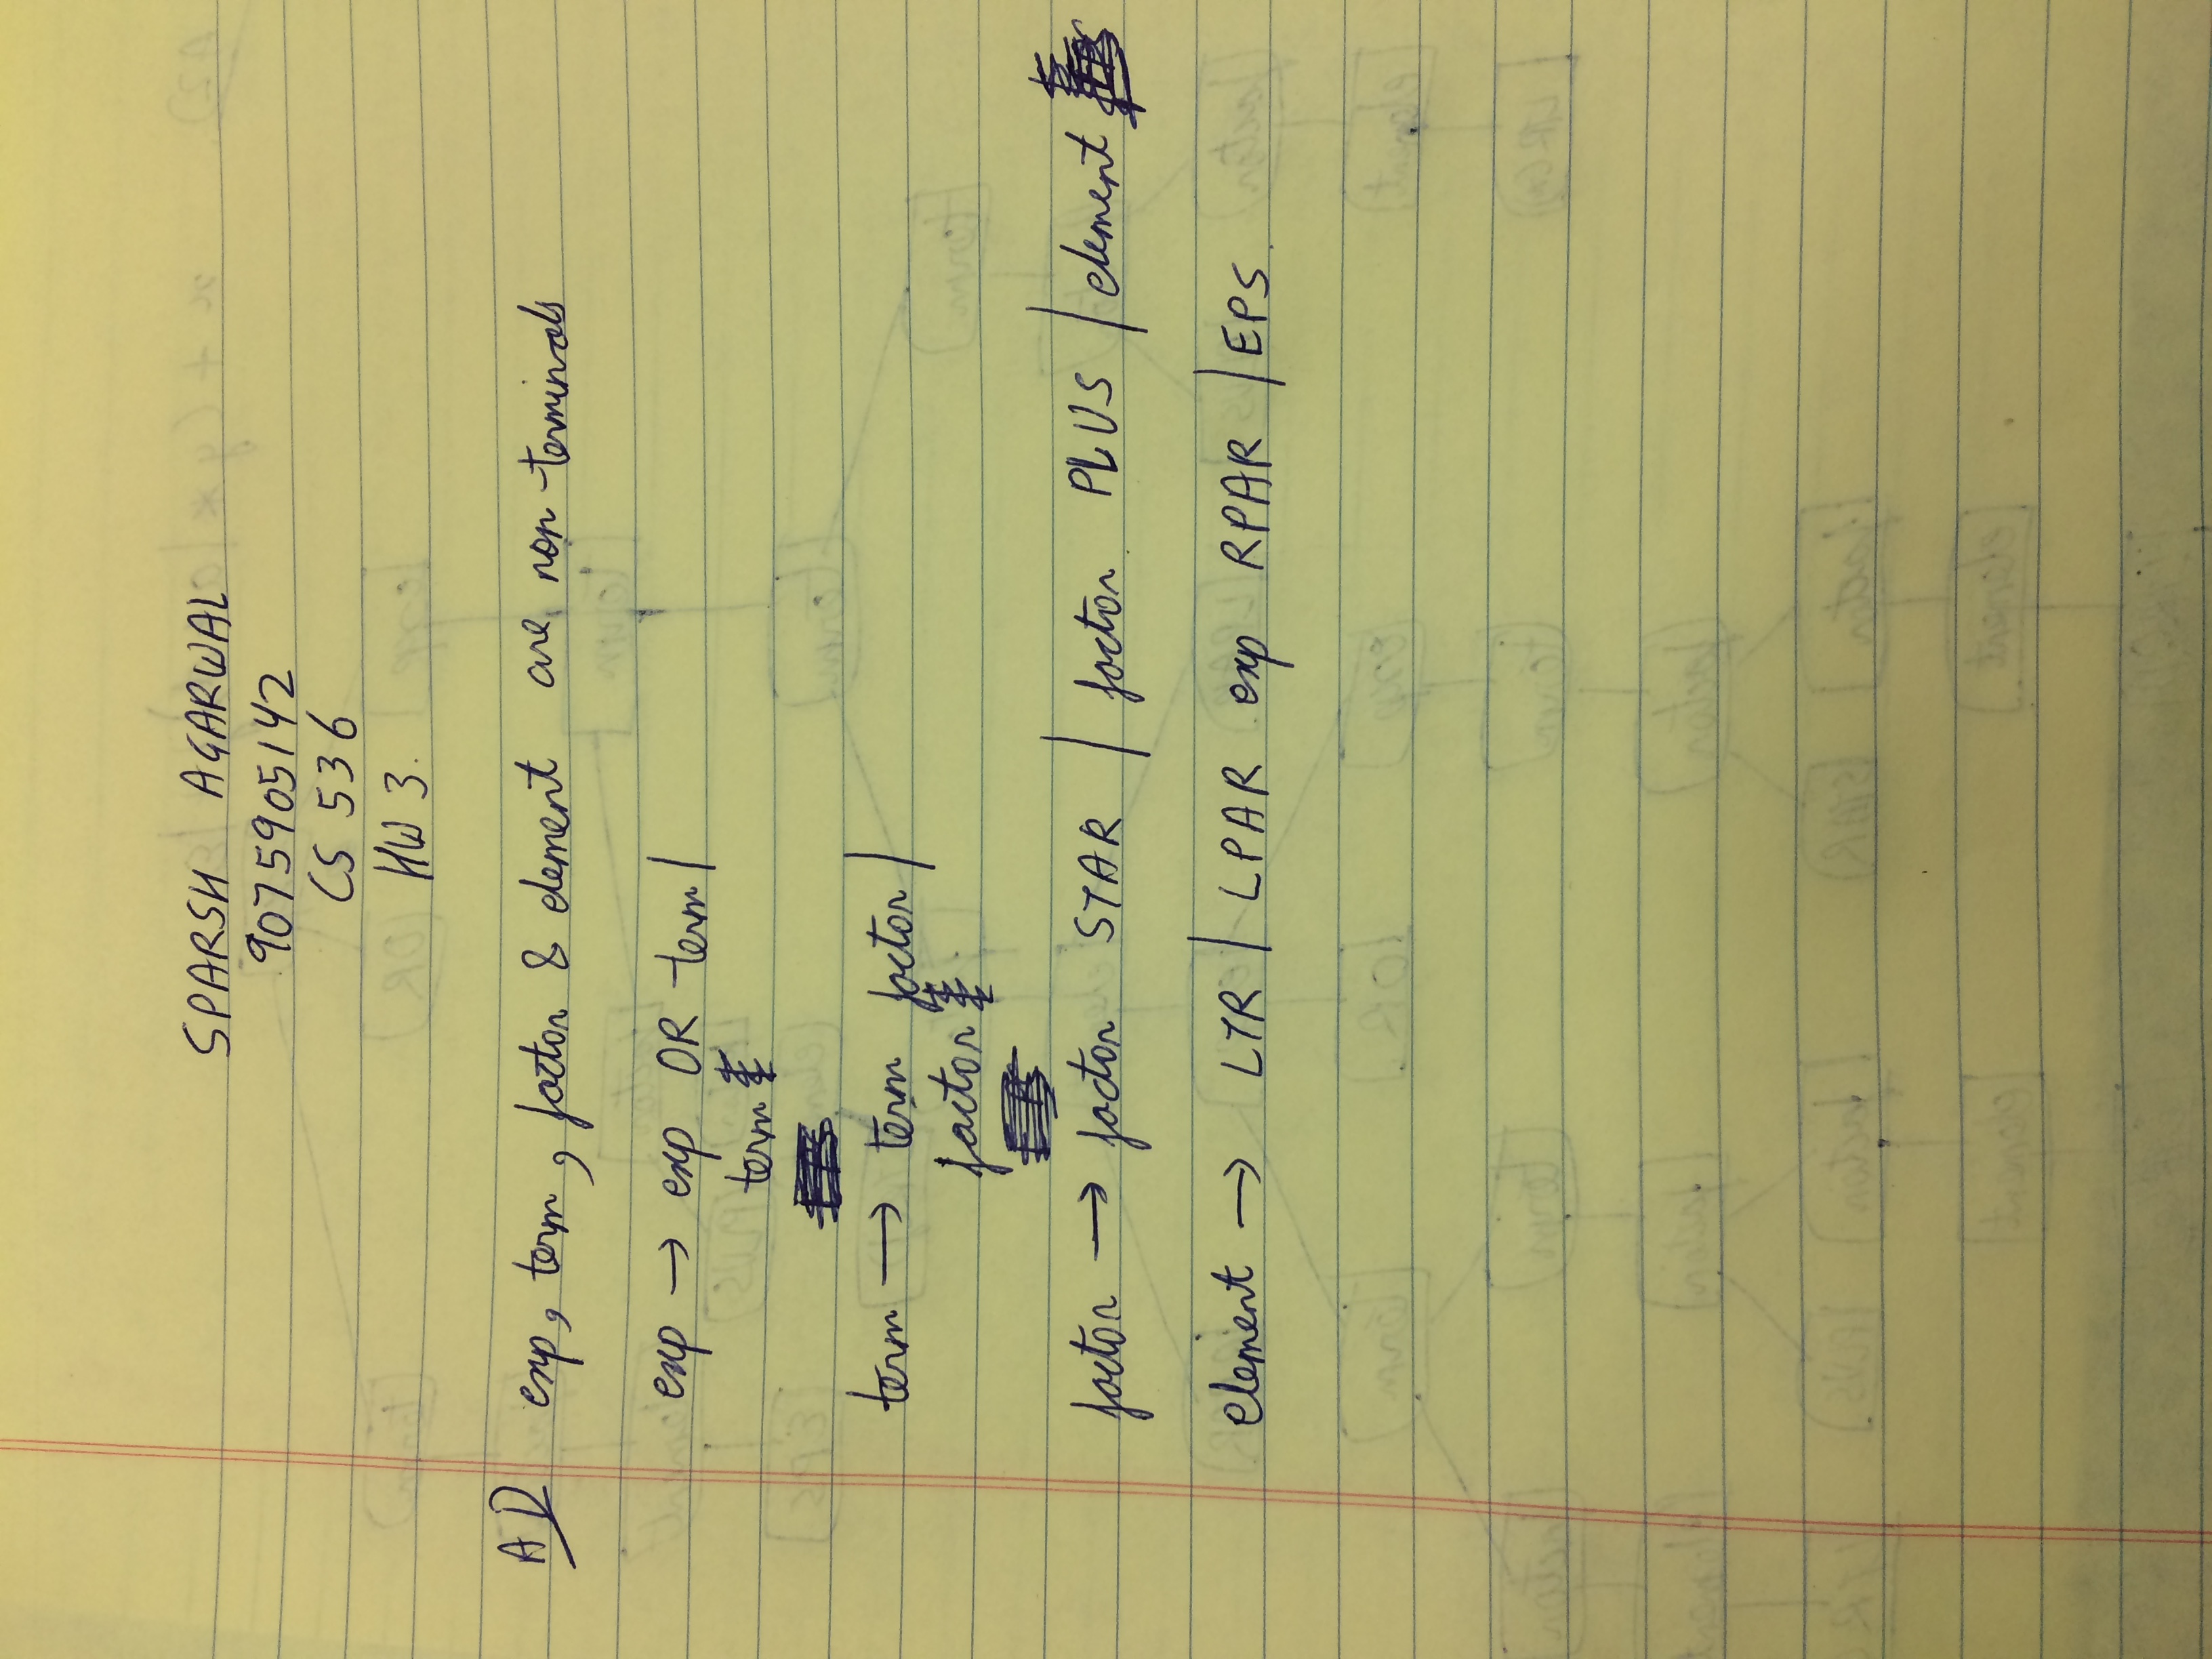 SPARSH AGARWAL
9075905142
CS 536
HW 3.
A1) exp, term, factor & element are non-terminals
exp → exp OR term |
term
term → term factor |
factor
factor → factor STAR | factor PLUS | element
element → LTR | LPAR exp RPAR | EPS.